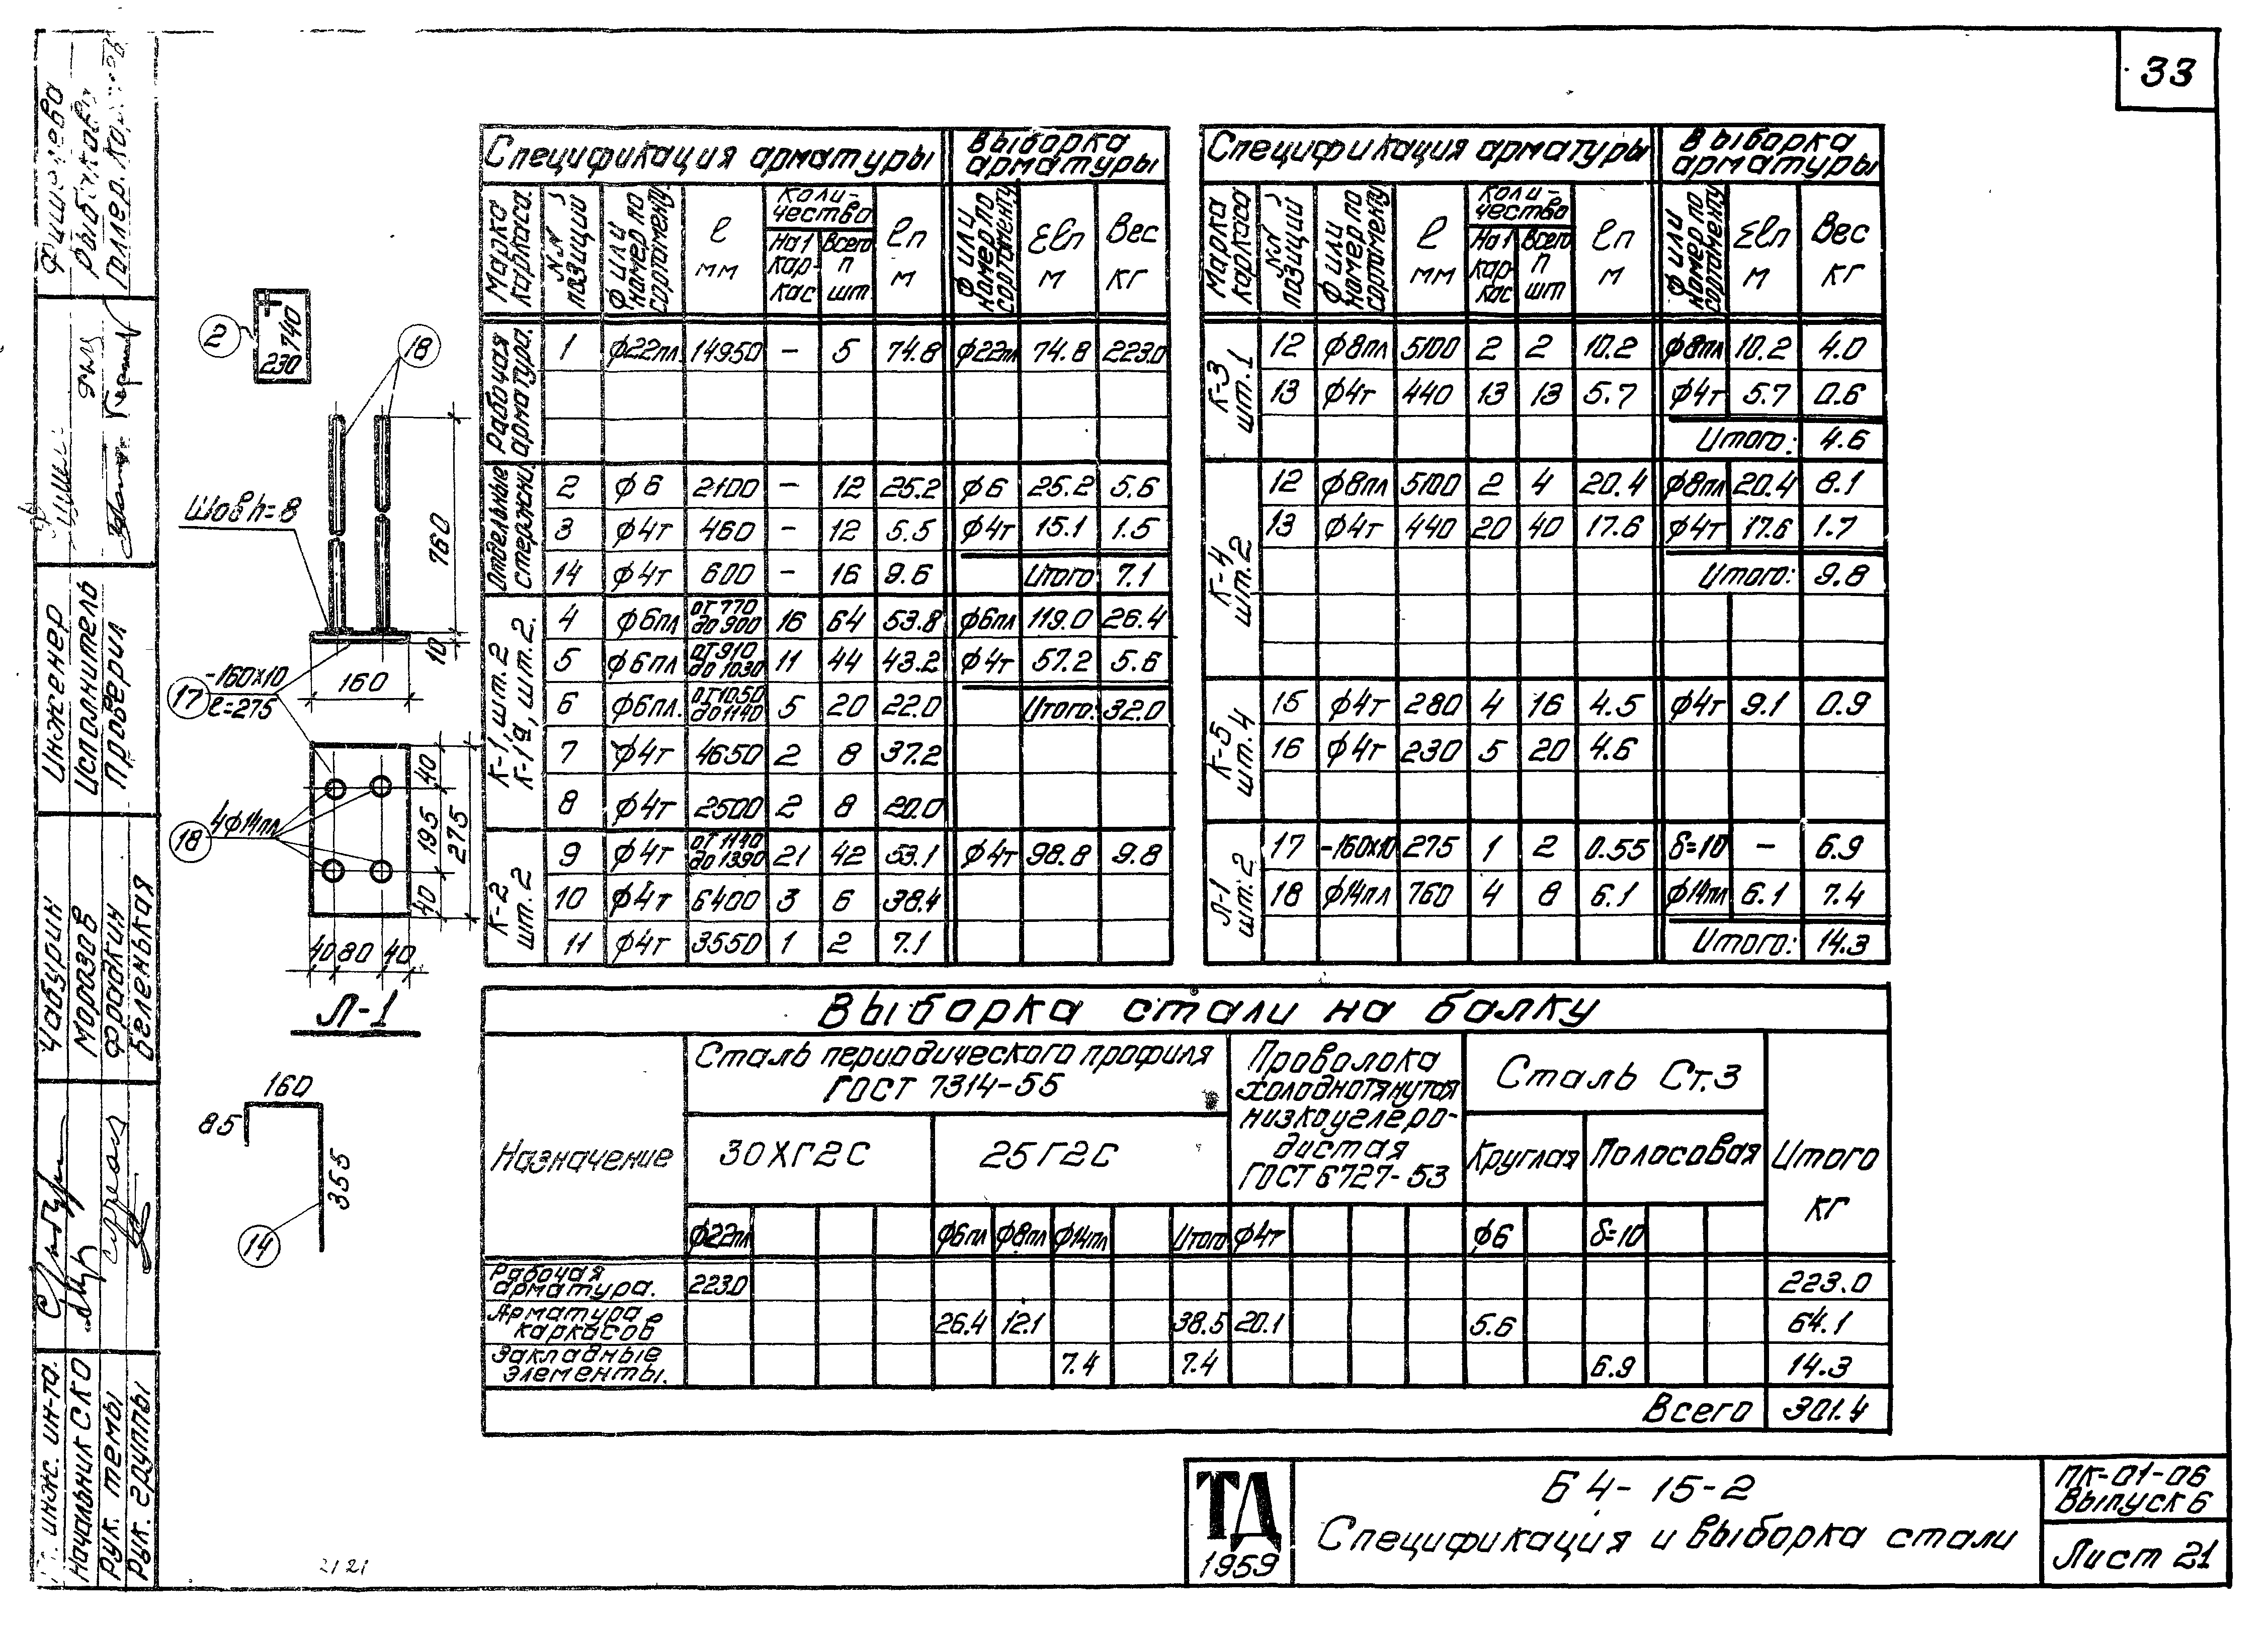 33
Спецификация арматуры
Выборка арматуры
Марка каркаса.
№№ позиций
Ф или номер по сортаменту
ℓ мм
Количество
На 1 каркас
Всего п шт.
ℓп м
Ф или номер по сортаменту
Σℓп м
Вес кг
Рабочая арматура.
1 ф22пл 14950 – 5 74.8 ф22пл 74.8 223.0
Отдельные стержни
2 ф6 2100 – 12 25.2 ф6 25.2 5.6
3 ф4т 460 – 12 5.5 ф4т 15.1 1.5
14 ф4т 600 – 16 9.6 Итого 7.1
К-1, шт.2
К-1а, шт.2.
4 ф6пл от 770 до 900 16 64 53.8 ф6пл 119.0 26.4
5 ф6пл от 910 до 1030 11 44 43.2 ф4т 57.2 5.6
6 ф6пл. от 1050 до 1140 5 20 22.0 Итого: 32.0
7 ф4т 4650 2 8 37.2
8 ф4т 2500 2 8 20.0
К-2 шт. 2
9 ф4т от 1140 до 1390 21 42 53.1 ф4т 98.8 9.8
10 ф4т 6400 3 6 38.4
11 ф4т 3550 1 2 7.1
Спецификация арматуры
Выборка арматуры
Марка каркаса
№№ позиций
Ф или номер по сортаменту
ℓ мм
Количество
На 1 каркас
Всего п шт
ℓп м
Ф или номер по сортаменту
Σℓп м
Вес кг
К-3 шт.1
12 ф8пл 5100 2 2 10.2 ф8пл 10.2 4.0
13 ф4т 440 13 13 5.7 ф4т 5.7 0.6
Итого: 4.6
К-4 шт.2
12 ф8пл 5100 2 4 20.4 ф8пл 20.4 8.1
13 ф4т 440 20 40 17.6 ф4т 17.6 1.7
Итого: 9.8
К-5 шт.4
15 ф4т 280 4 16 4.5 ф4т 9.1 0.9
16 ф4т 230 5 20 4.6
Л-1 шт.2
17 -160х10 275 1 2 0.55 δ=10 – 6.9
18 ф14пл 760 4 8 6.1 ф14пл 6.1 7.4
Итого: 14.3
Выборка стали на балку
Назначение
Сталь периодического профиля
ГОСТ 7314-55
30ХГ2С
25Г2С
Проволока
холоднотянутая
низкоуглеро-
дистая
ГОСТ 6727-53
Сталь Ст.3
Круглая
Полосовая
Итого
кг
ф22пл ф6пл ф8пл ф14пл Итого ф4т ф6 δ=10
Рабочая арматура. 223.0 223.0
Арматура каркасов 26.4 12.1 38.5 20.1 5.6 64.1
Закладные элементы. 7.4 7.4 6.9 14.3
Всего 301.4
2
740
230
18
Шов h=8
760
10
17
-160х10
ℓ=275
160
18
4ф14пл
40
195
40
275
40 80 40
Л-1
160
85
355
14
ТД
1959
Б4-15-2
Спецификация и выборка стали
ПК-01-06
Выпуск 6
Лист 21
инж. ин-та.
Начальник СКО
Рук. темы
Рук. группы
Чабурин
Морозов
Фрадкин
Беленькая
Инженер
Исполнитель
Проверил
Фишелева
21 21